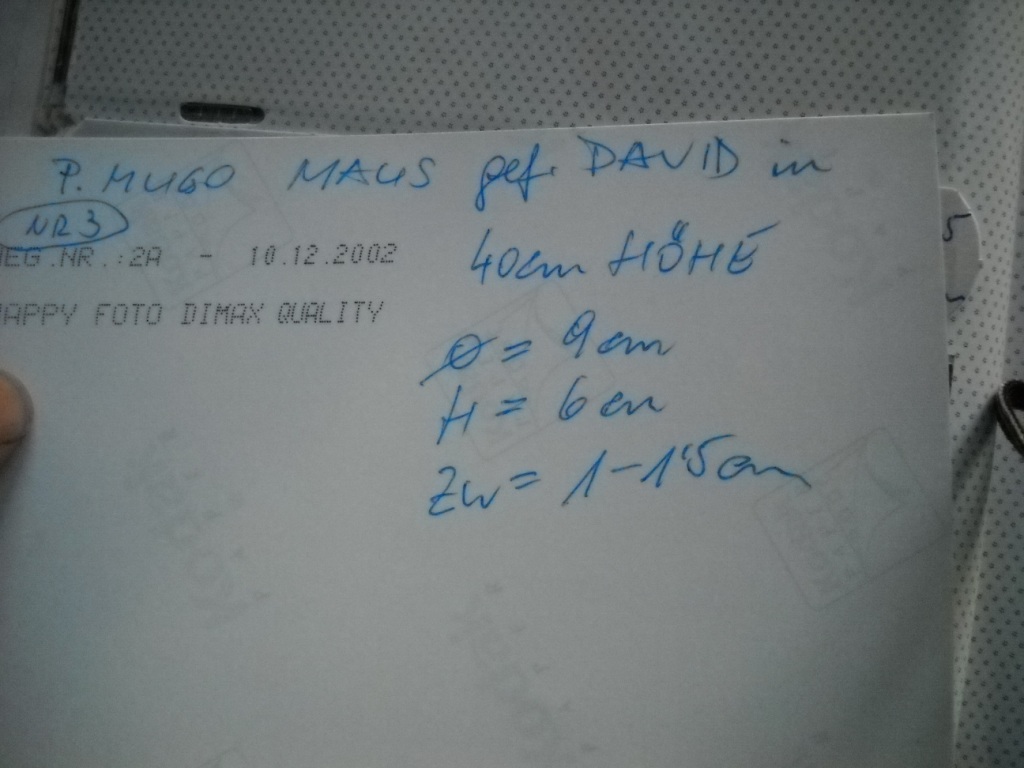 P. MUGO MAUS gef. DAVID in
40cm HÖHE
NR 3
NEG.NR.:2A - 10.12.2002
HAPPY FOTO DIMAX QUALITY
Ø = 9cm
H = 6cm
ZW = 1-1'5cm
5